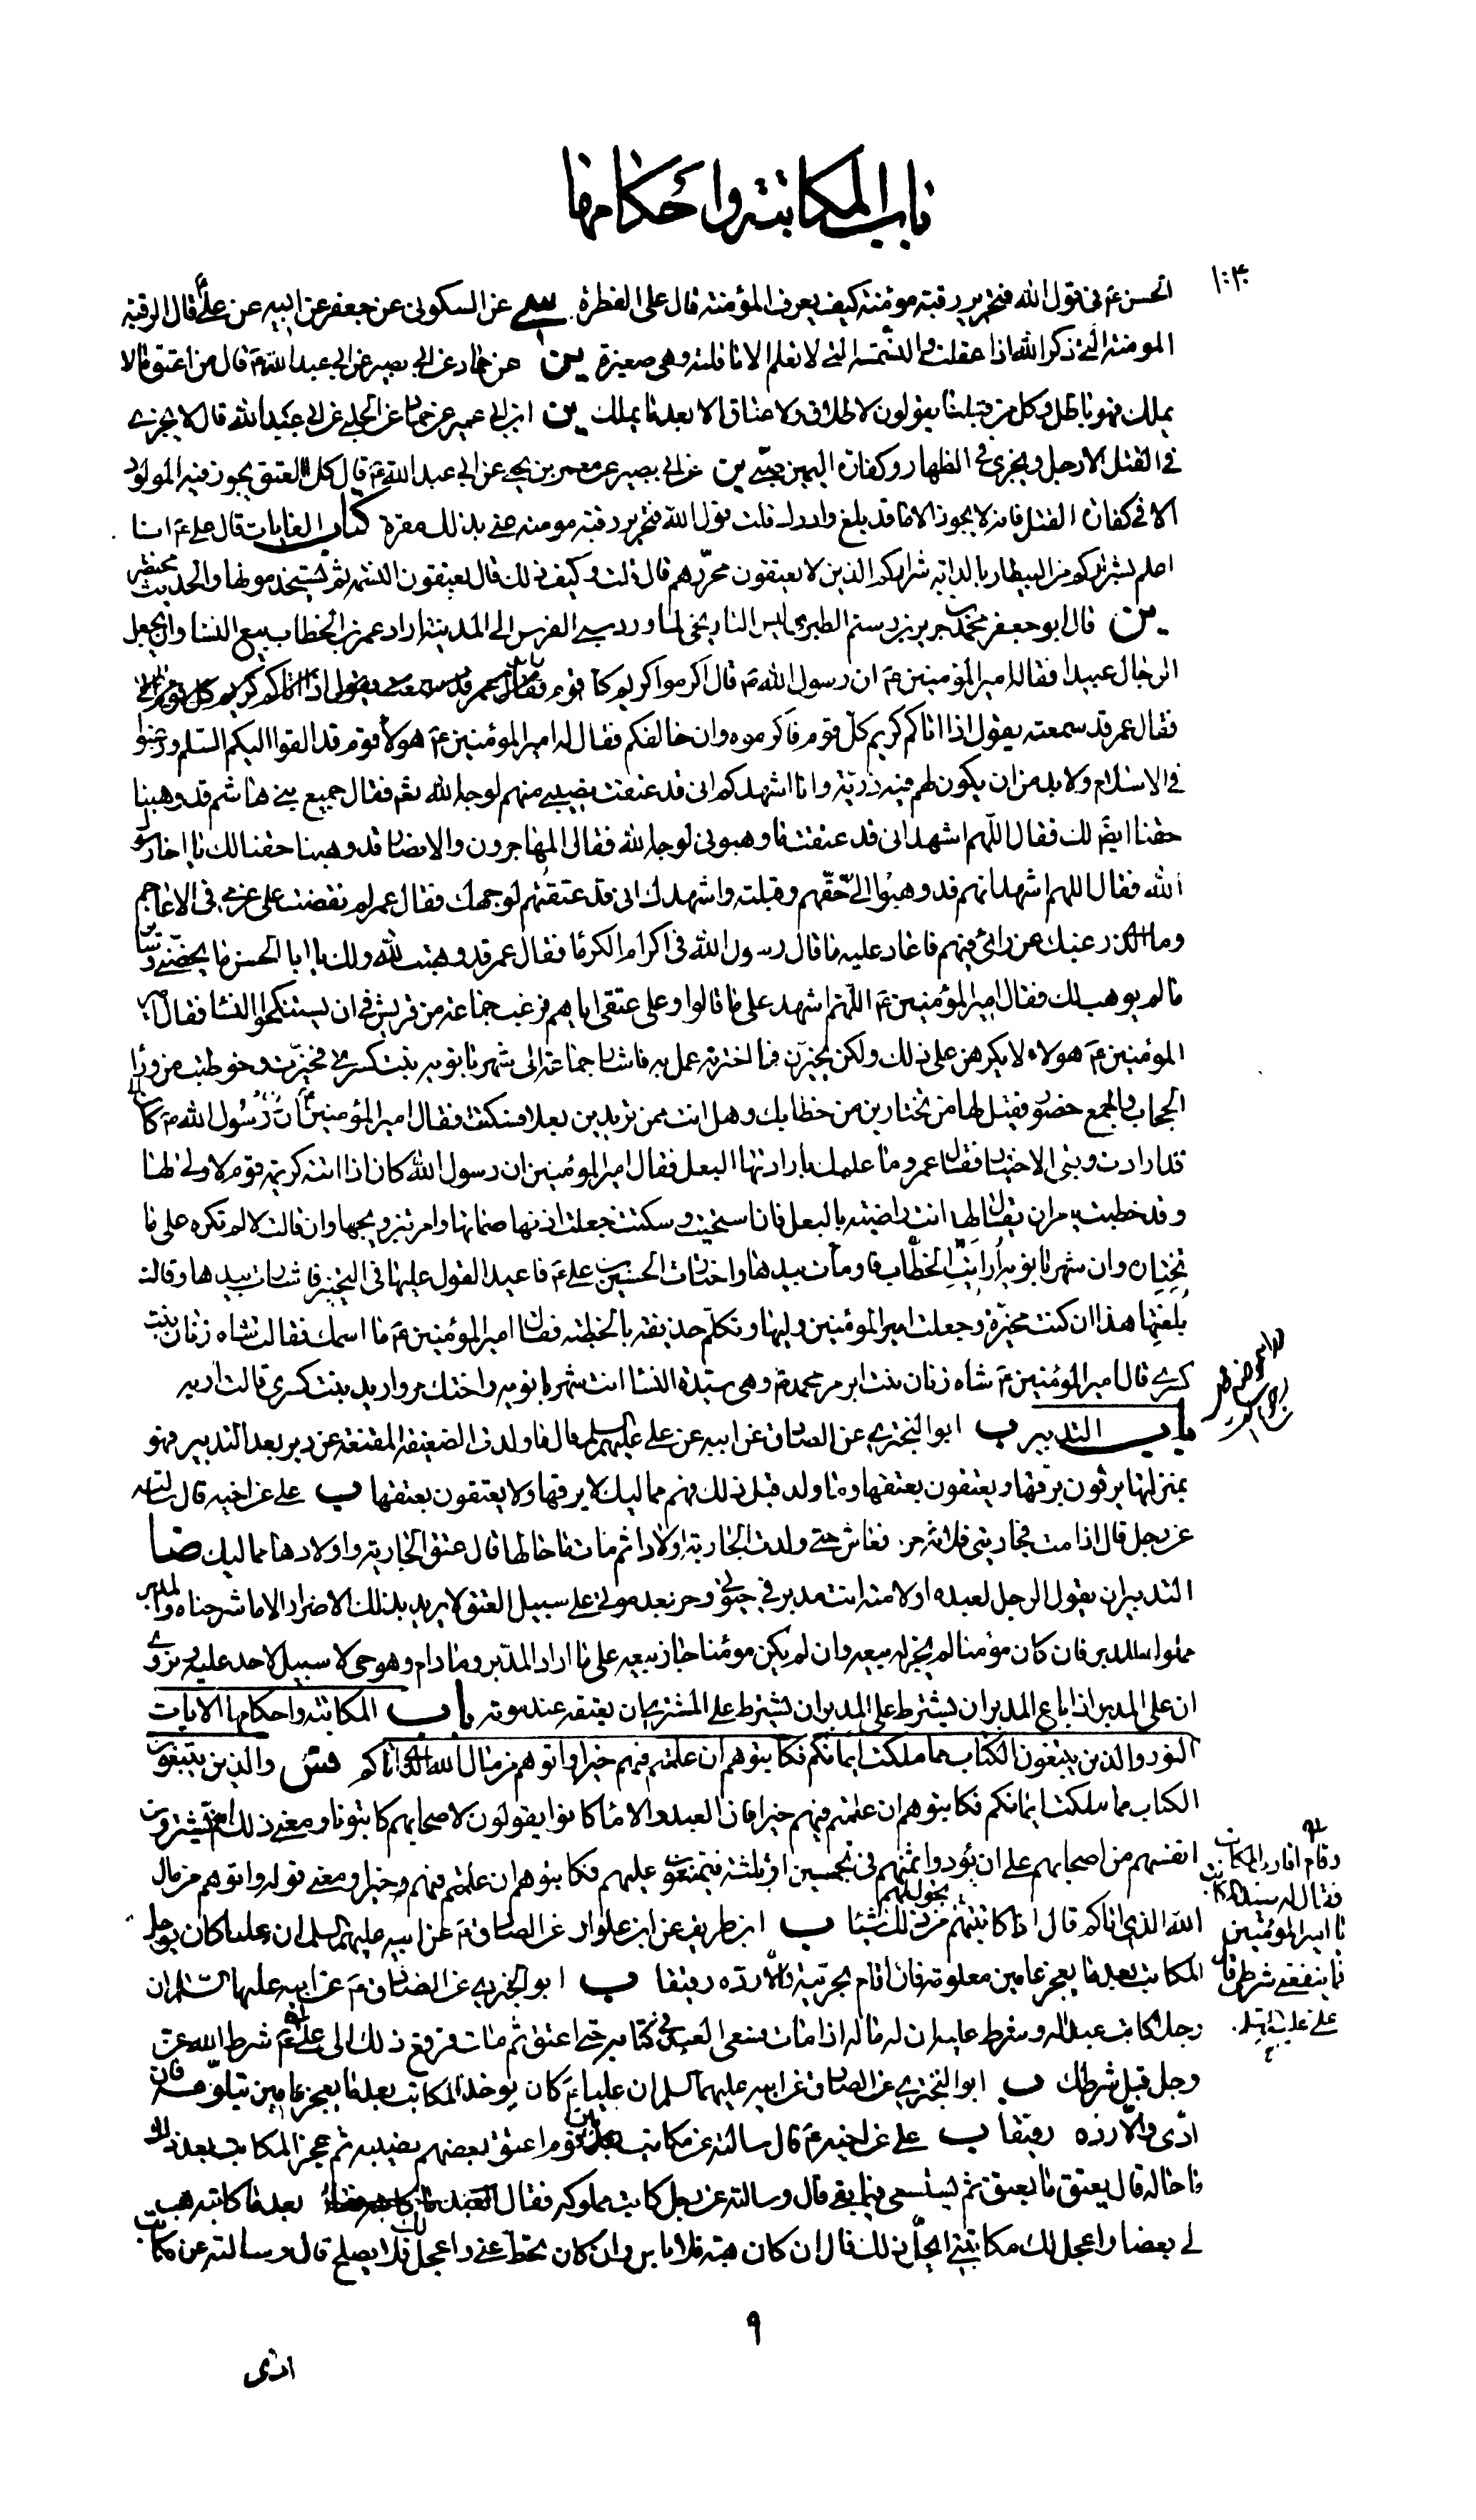 باب المكاتبة وأحكامها
١٠٤
الحسن ع في قول الله فتحرير رقبة مومنة كيف يعرف المؤمنة قال على الفطرة عن السكوني عن جعفر عن ابيه عن علي ع قال الرقبة
المومنة التي ذكر الله اذا عقلت والنسمة التي لا تعلم الا ما قلته وهي صغيرة ين عن حماد عن ابي بصير عن ابي عبد الله ع قال من اعتق ما لا
يملك فهو باطل وكل من قبلنا يقولون لا طلاق ولا عتاق الا بعد ما يملك ين ابن ابي عمير عن حماد عن الحلبي عن ابي عبد الله قال لا يجزي
في القتل الا رجل ويجزي في الظهار وكفارة اليمين صبي ين عن ابي بصير عن معمر بن يحيى عن ابي عبد الله ع قال كل العتق يجوز فيه المولود
الا في كفارة القتل فانه لا يجوز الا ما قد بلغ وادرك قلت قول الله فتحرير رقبة مومنة عنى بذلك مقرة كتاب الغايات قال علي ع انا
اعلم بشراركم من البيطار بالدابة شراركم الذين لا يعتقون محررهم قال قلت وكيف ذلك قال يعتقون النسمة ثم يستخدمونها والحديث مختصر
ين قال ابو جعفر محمد بن جرير بن رستم الطبري ليس التاريخي لما ورد سبي الفرس الى المدينة اراد عمر بن الخطاب بيع النساء وان يجعل
الرجال عبيدا فقال له امير المؤمنين ع ان رسول الله ص قال اكرموا كريم كل قوم
فقال عمر قد سمعته يقول اذا اتاكم كريم كل قوم فاكرموه وان خالفكم فقال له امير المؤمنين ع هولاء قوم قد القوا اليكم السلم ورغبوا
في الاسلام ولا بد من ان يكون لهم فيه ذرية وانا اشهدكم اني قد عتقت نصيبي منهم لوجه الله تع فقال جميع بني هاشم قد وهبنا
حقنا ايض لك فقال اللهم اشهد اني قد عتقت ما وهبوني لوجه الله فقال المهاجرون والانصار قد وهبنا حقنا لك يا اخا رسول
الله فقال اللهم اشهد انهم قد وهبوا الي حقهم وقبلته واشهدك اني قد عتقتهم لوجهك فقال عمر لم نقضت علي عزمي في الاعاجم
وما الذي رغبك عن رائي فيهم فاعاد عليه ما قال رسول الله في اكرام الكرماء فقال عمر قد وهبت لله ولك يا ابا الحسن ما يخصني وسائر
ما لم يوهب لك فقال امير المؤمنين ع اللهم اشهد على ما قالوا وعلى عتقي اياهم فرغب جماعة من قريش في ان يستنكحوا النساء فقال امير
المومنين ع هولاء لا يكرهن على ذلك ولكن يخيرن فما اخترنه عمل به فاشار جماعة الى شهربانويه بنت كسرى فخيرت وخوطبت من وراء
الحجاب والجمع حضور فقيل لها من تختارين من خطابك وهل انت ممن تريدين بعلا فسكتت فقال امير المؤمنين
قد ارادت وبقي الاختيار فقال عمر وما علمك بارادتها البعل فقال امير المؤمنين ان رسول الله كان اذا اتته كريمة قوم لا ولي لها
وقد خطبت يامر ان يقال لها انت راضية بالبعل فان استحيت وسكتت جعلت اذنها صماتها وامر بتزويجها وان قالت لا لم تكره على ما
تختاره وان شهربانويه اريت الخطاب فاومات بيدها واختارت الحسين بن علي ع فاعيد القول عليها في التخيير فاشارت بيدها وقالت
بلغتها هذا ان كنت مخيرة وجعلت امير المؤمنين وليها وتكلم حذيفة بالخطبة فقال امير المؤمنين ع ما اسمك فقالت شاه زنان بنت
كسرى قال امير المؤمنين ع شاه زنان بنت وهي سيدة النساء انت شهربانويه واختك مرواريد بنت كسرى قالت اريه
باب التدبير ب ابو البختري عن الصادق عن ابيه عن علي عليهم السلم قال ما ولدت الضعيفة المعتقة عن دبر بعد التدبير فهو
بمنزلتها يرقون برقها ويعتقون بعتقها وما ولد قبل ذلك فهم مماليك لا يرقها ولا يعتقون بعتقها ب علي عن اخيه قال سالته
عن رجل قال اذا مت فجاريتي فلانة حرة فعاش حتى ولدت الجارية اولادا ثم مات ما حالها قال عتق الجارية واولادها مماليك ضا
التدبير ان يقول الرجل لعبده او لامته انت مدبر في حيوتي وحر بعد موتي على سبيل العتق لا يريد بذلك الاضرار الا ما شرحناه والمدبر
مملوك للمدبر فان كان مؤمنا لم يجز له بيعه وان لم يكن مومنا جاز بيعه على ما اراد المدبر وما دام هو حي لا سبيل لاحد عليه ونروي
ان على المدبر اذا باع المدبر ان يشترط على المشتري ان يعتقه عند موته باب المكاتبة واحكامها الايات
النور والذين يبتغون الكتاب مما ملكت ايمانكم فكاتبوهم ان علمتم فيهم خيرا واتوهم من مال الله الذي اتاكم فس والذين يبتغون
الكتاب مما ملكت ايمانكم فكاتبوهم ان علمتم فيهم خيرا فان العبيد والاماء كانوا يقولون لاصحابهم كاتبونا ومعنى ذلك انهم يشترون
انفسهم من اصحابهم على ان يؤدوا ثمنهم في نجمين او ثلثة فيمتنعون عليهم فكاتبوهم ان علمتم فيهم خيرا ومعنى قوله واتوهم من مال
الله الذي اتاكم قال اذا كاتبتهم من ذلك شيئا ب ابن طريف عن ابن علوان عن الصادق ع عن ابيه عليهم السلم ان عليا كان يوجل
المكاتب بعد ما يعجز عامين معلومة فان اقام بحريته والا رده رقيقا ب ابو البختري عن الصادق ع عن ابيه عليهما السلم ان
رجلا كاتب عبدا له وشرط عليه ان له ماله اذا مات فسعى العبد في كتابته حتى اعتق ثم مات فرفع ذلك الى علي ع شرط الله عز
وجل قبل شرطك ب ابو البختري عن الصادق عن ابيه عليهما السلم ان عليا ع كان يوخذ المكاتب بعد ما يعجز عامين يتلومه فان
ادى والا رده رقيقا ب علي عن اخيه ع قال سالته عن مكاتب بين قوم اعتق بعضهم نصيبه ثم عجز المكاتب بعد ذلك
ما حاله قال يعتق ما يعتق ثم يستسعى فيما بقي قال وسالته عن رجل كاتب مملوكه فقال بعد ما كاتبه هب
لي بعضا واعجل لك مكاتبتي ايحل ذلك قال ان كان هبة فلا باس وان كان يحط عني واعجل لك فلا يصلح قال وسالته عن مكاتب
فقال له
يا امير المؤمنين
ما ينفعني شرطي قال
علي عليه السلم
٩
ادى